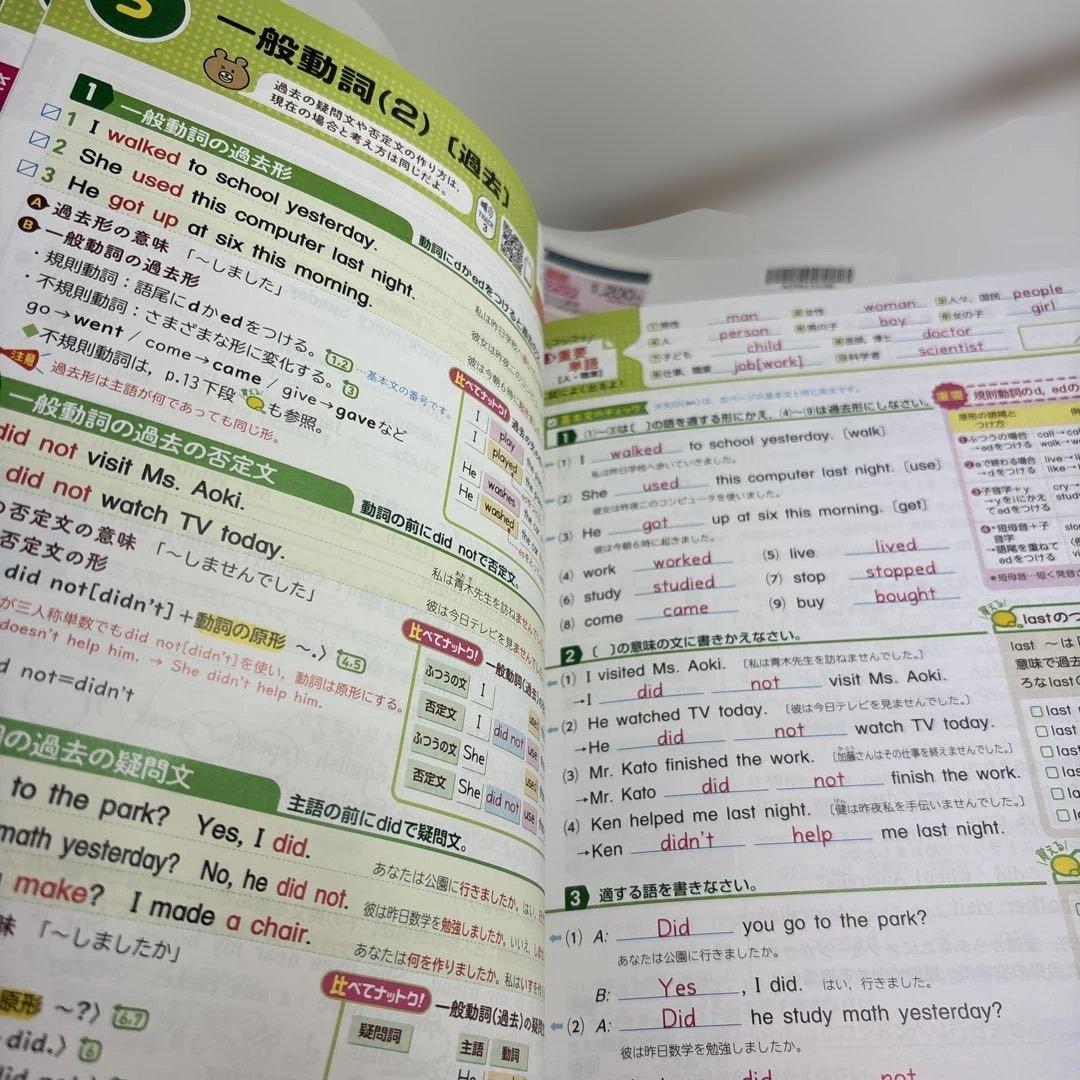 5
一般動詞(2)〔過去〕
過去の疑問文や否定文の作り方は、
現在の場合と考え方は同じだよ。
TRACK
3
1 一般動詞の過去形
動詞にdかedをつけると過去の
1 I walked to school yesterday.
2 She used this computer last night.
3 He got up at six this morning.
私は昨日学校へ歩
彼女は昨夜この
彼は今朝6時に起き
A 過去形の意味 「〜しました」
B 一般動詞の過去形
・規則動詞：語尾にdかedをつける。 1,2 …基本文の番号です。
・不規則動詞：さまざまな形に変化する。 3
go→went / come→came / give→gaveなど
◆不規則動詞は，p.13下段 覚える! も参照。
注意 過去形は主語が何であっても同じ形。
比べてナットク!
I play
I played
He washes
He washed
一般動詞の過去の否定文
動詞の前にdid notで否定文。
did not visit Ms. Aoki.
私は青木先生を訪ねません
did not watch TV today.
彼は今日テレビを見ません
の否定文の意味 「〜しませんでした」
否定文の形
did not[didn't]＋動詞の原形 〜.〉 4,5
が三人称単数でもdid not[didn't]を使い，動詞は原形にする。
doesn't help him. → She didn't help him.
d not=didn't
比べてナットク! 一般動詞(過去)の
ふつうの文 I used
否定文 I did not use
ふつうの文 She used
否定文 She did not use
詞の過去の疑問文
主語の前にdidで疑問文。
to the park? Yes, I did.
あなたは公園に行きましたか。はい，
math yesterday? No, he did not.
彼は昨日数学を勉強しましたか。いいえ，
make? I made a chair.
あなたは何を作りましたか。私はいすを作
味 「〜しましたか」
原形 〜?〉 6,7
did.〉 6
did not.〉
比べてナットク! 一般動詞(過去)の疑問
疑問詞 主語 動詞
He
1,200
重要
単語
[人・職業]
試によく出るよ!
①男性 man
②女性 woman
③人々，国民 people
④人 person
⑤男の子 boy
⑥女の子 girl
⑦子ども child
⑧医師，博士 doctor
⑨仕事，職業 job[work]
⑩科学者 scientist
基本文のチェック 水矢印(⬅)は，左ページの基本文と同じ英文です。
1 (1)〜(3)は〔 〕の語を適する形にかえ，(4)〜(9)は過去形にしなさい。
(1) I walked to school yesterday. 〔walk〕
私は昨日学校へ歩いていきました。
(2) She used this computer last night. 〔use〕
彼女は昨夜このコンピュータを使いました。
(3) He got up at six this morning. 〔get〕
彼は今朝6時に起きました。
(4) work worked (5) live lived
(6) study studied (7) stop stopped
(8) come came (9) buy bought
重要 規則動詞のd，edの
原形の語尾と
つけ方
例
❶ふつうの場合
→edをつける
call→call
walk→w
❷eで終わる場合
→dをつける
live→l
like→
❸子音字＋y
→yをiにかえ
てedをつける
cry→
stud
❹*短母音＋子
音字
→語尾を重ねて
edをつける
*短母音…短く発音さ
2 〔 〕の意味の文に書きかえなさい。
(1) I visited Ms. Aoki. 〔私は青木先生を訪ねませんでした。〕
→I did not visit Ms. Aoki.
(2) He watched TV today. 〔彼は今日テレビを見ませんでした。〕
→He did not watch TV today.
(3) Mr. Kato finished the work. 〔加藤さんはその仕事を終えませんでした。〕
→Mr. Kato did not finish the work.
(4) Ken helped me last night. 〔健は昨夜私を手伝いませんでした。〕
→Ken didn't help me last night.
覚える! lastのつ
last 〜は「
意味で過去
ろなlastの
□last n
□last
□last
□las
□la
□l
覚える!
3 適する語を書きなさい。
(1) A: Did you go to the park?
あなたは公園に行きましたか。
B: Yes , I did. はい，行きました。
(2) A: Did he study math yesterday?
彼は昨日数学を勉強しましたか。
did not